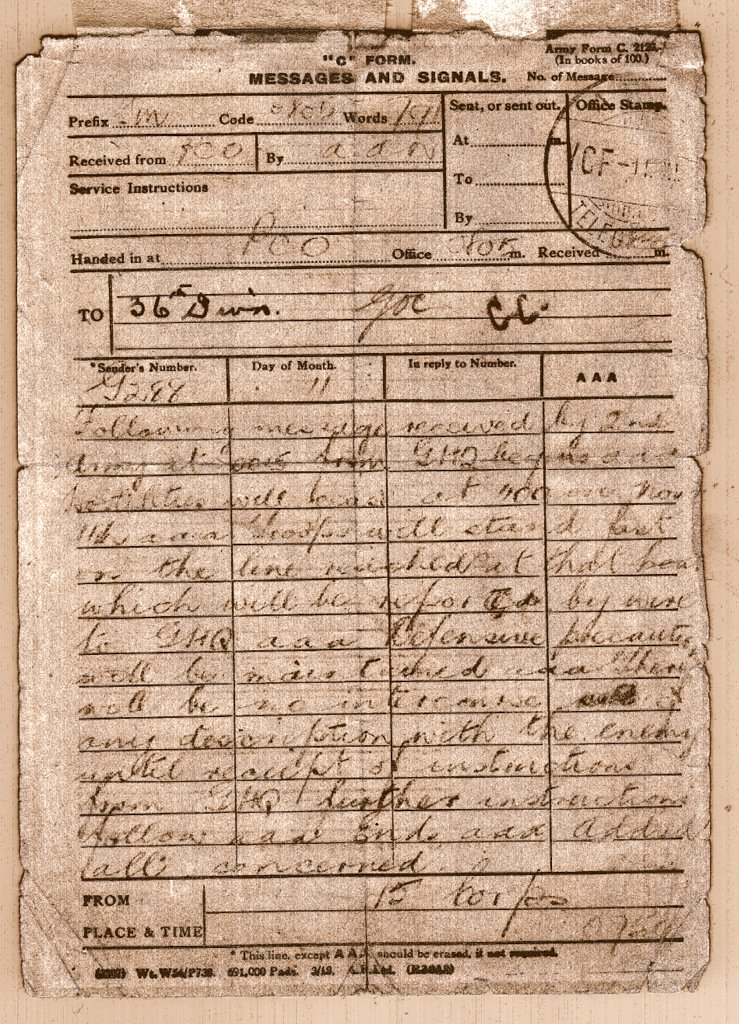 "C" FORM.
Army Form C. 2123.
(In books of 100.)
MESSAGES AND SIGNALS.
No. of Message
Prefix Sm Code Words
Sent, or sent out.
Office Stamp.
At m.
Received from By
To
Service Instructions
By
TELEGR
Handed in at Office m. Received m.
TO 36th Divn. GOC CC
*Sender's Number. Day of Month. In reply to Number. AAA
11
Following message received by 2nd
Army at from GHQ begins aaa
hostilities will cease at on Nov
11th aaa Troops will stand fast
on the line reached at that hour
which will be reported by wire
to GHQ aaa Defensive precautions
will be maintained aaa There
will be no intercourse of
any description with the enemy
until receipt of instructions
from GHQ further instructions
follow aaa Ends aaa Added
all concerned
FROM 15 Corps
PLACE & TIME
* This line, except AAA, should be erased, if not required.
Wt. W54/P738. 691,000 Pads. 3/18.